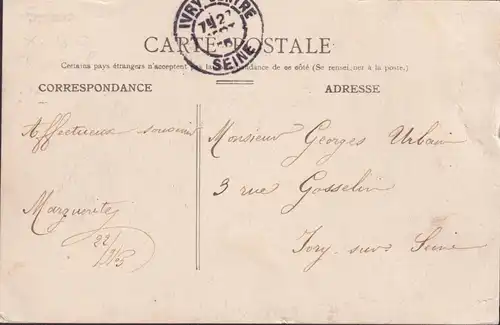 IVRY CENTRE
SEINE
CARTE POSTALE
Certains pays étrangers n'acceptent pas la correspondance de ce côté (Se renseigner à la poste.)
CORRESPONDANCE
ADRESSE
Affectueux souvenir
Marguerite
Monsieur Georges Urbain
3 rue Gosselin
Ivry-sur-Seine